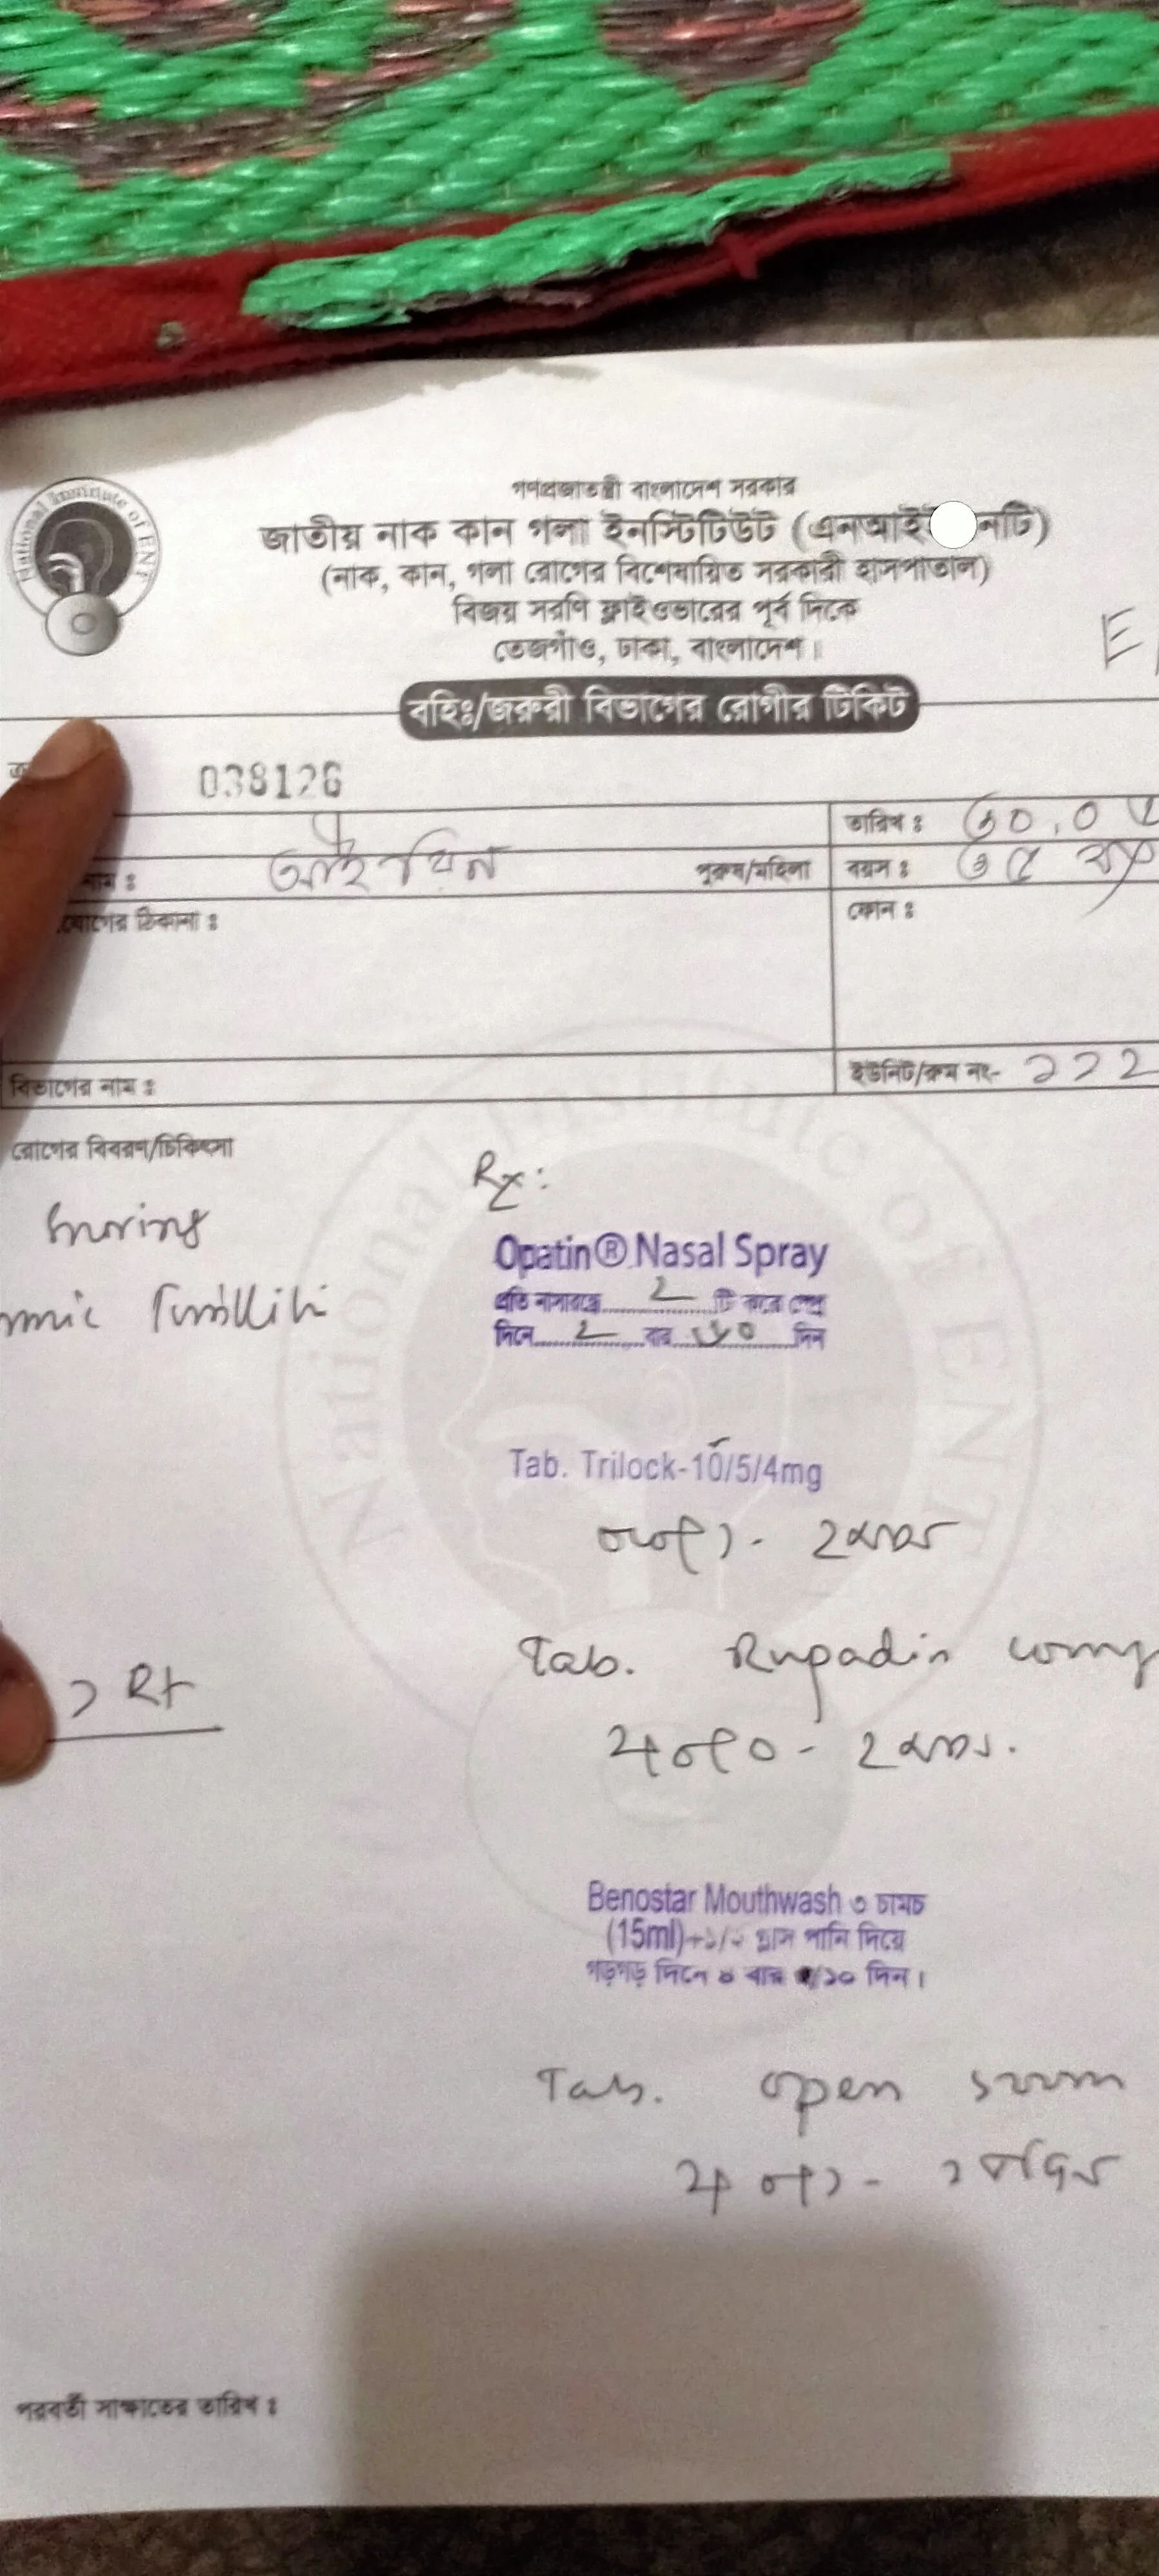 National Institute of ENT
গণপ্রজাতন্ত্রী বাংলাদেশ সরকার
জাতীয় নাক কান গলা ইনস্টিটিউট (এনআই নটি)
(নাক, কান, গলা রোগের বিশেষায়িত সরকারী হাসপাতাল)
বিজয় সরণি ফ্লাইওভারের পূর্ব দিকে
তেজগাঁও, ঢাকা, বাংলাদেশ।
বহিঃ/জরুরী বিভাগের রোগীর টিকিট
038126
তারিখ : ৩০.০
নাম : পুরুষ/মহিলা বয়স : ৩৫
যোগের ঠিকানা : ফোন :
বিভাগের নাম : ইউনিট/রুম নং- ২২২
রোগের বিবরণ/চিকিৎসা
Rx:
Snoring
Opatin® Nasal Spray
প্রতি নাসারন্ধ্রে 2 টি করে স্প্রে
দিনে 2 বার ৩০ দিন
Tab. Trilock-10/5/4mg
০+০+১ - ২ মাস
Tab. Rupadin
১+০+০ - ২ মাস.
Rt
Benostar Mouthwash ৩ চামচ
(15ml)+১/২ গ্লাস পানি দিয়ে
গড়গড় দিনে ৪ বার /১০ দিন।
Tab. open
১+০+১ -
পরবর্তী সাক্ষাতের তারিখ :